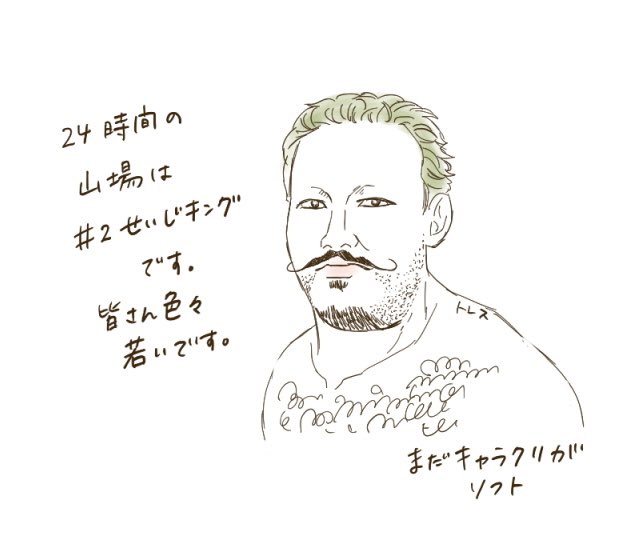 24時間の
山場は
#2せいじキング
です。
皆さん色々
若いです。
トレス
まだキャラクリが
ソフト